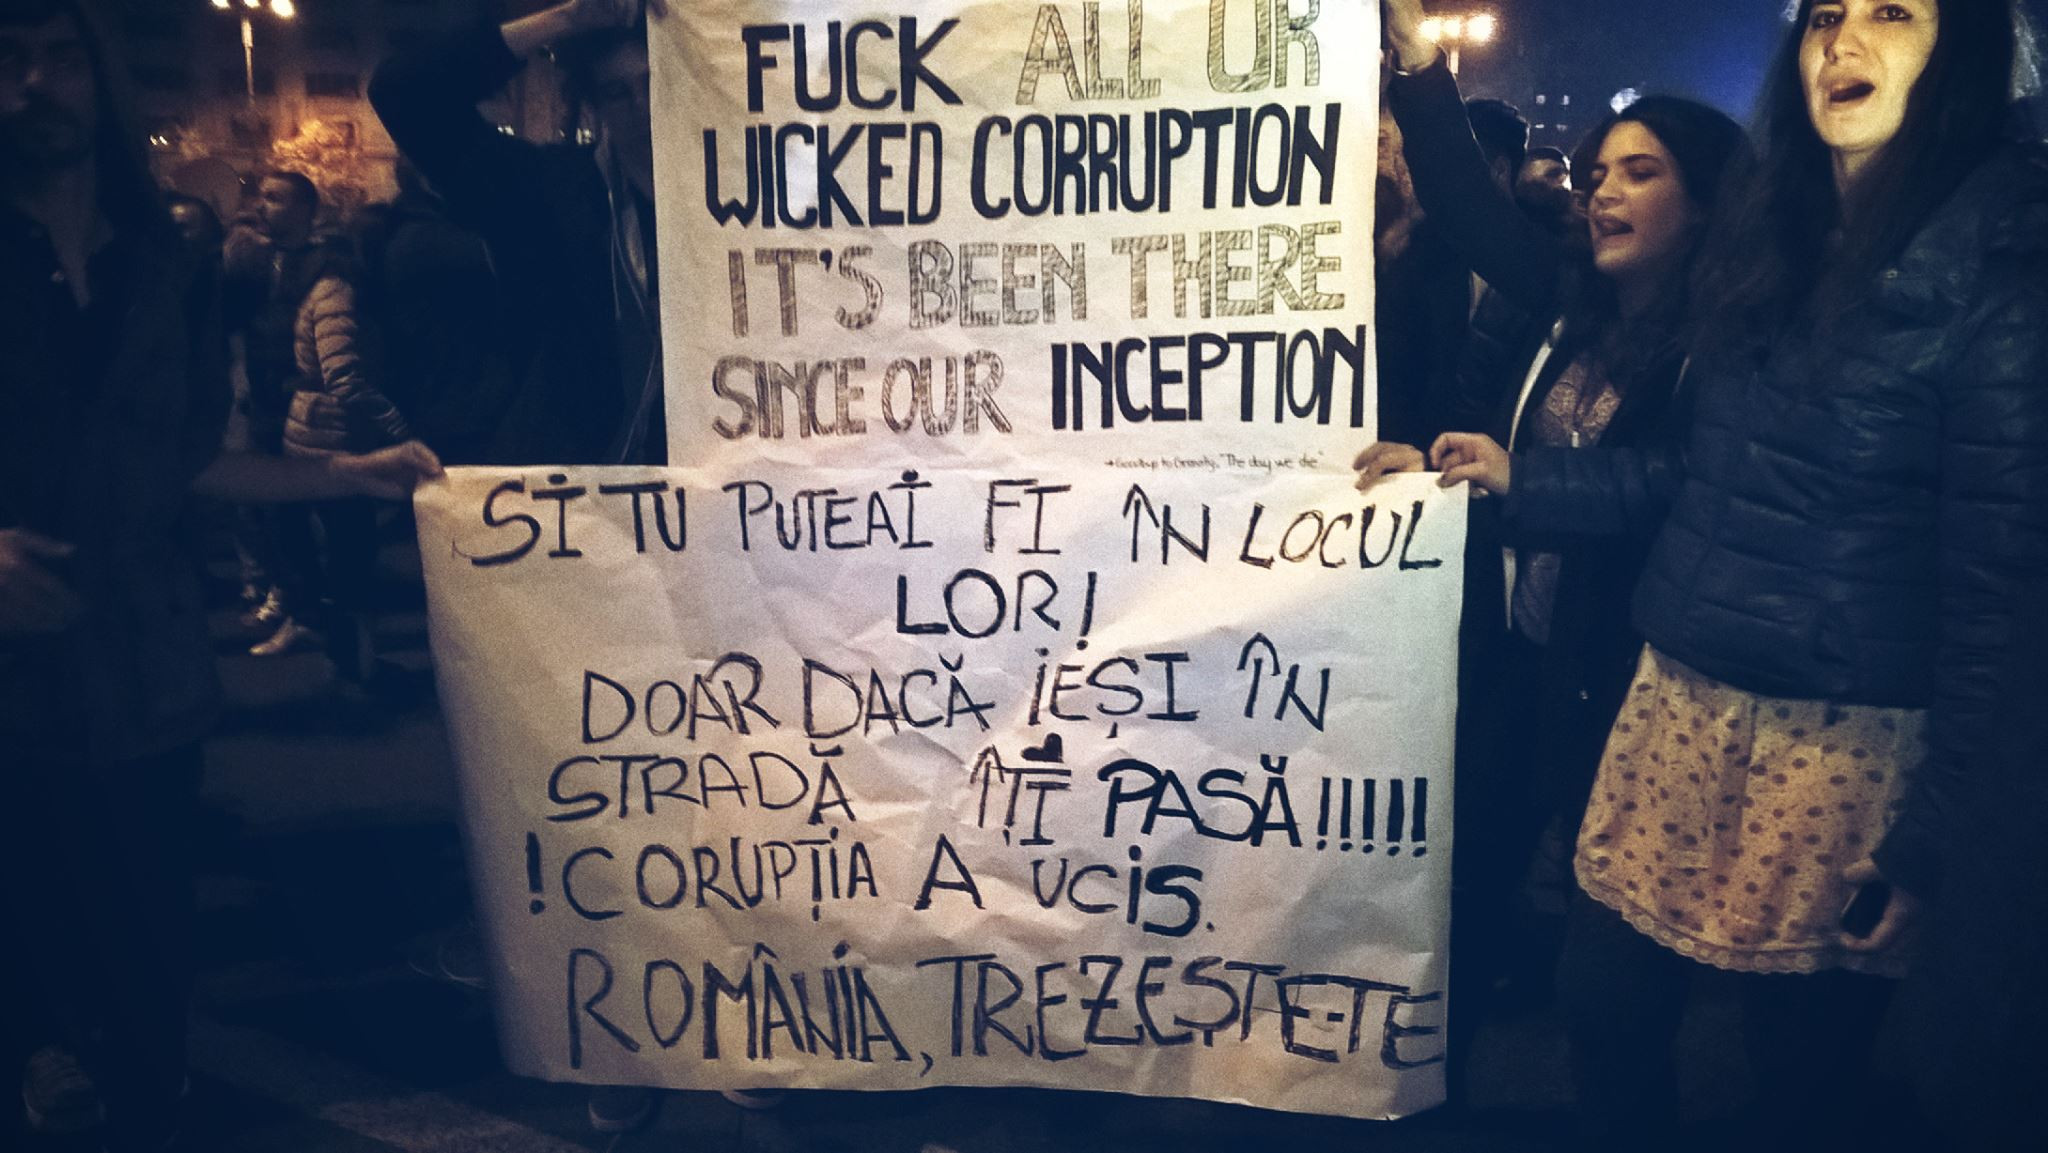 FUCK ALL UR
WICKED CORRUPTION
IT'S BEEN THERE
SINCE OUR INCEPTION
→Goodbye to Gravity, "The day we die"
SI TU PUTEAI FI ÎN LOCUL
LOR!
DOAR DACĂ IEȘI ÎN
STRADĂ ÎȚI PASĂ!!!!!
!CORUPȚIA A UCIS.
ROMÂNIA, TREZEȘTE-TE